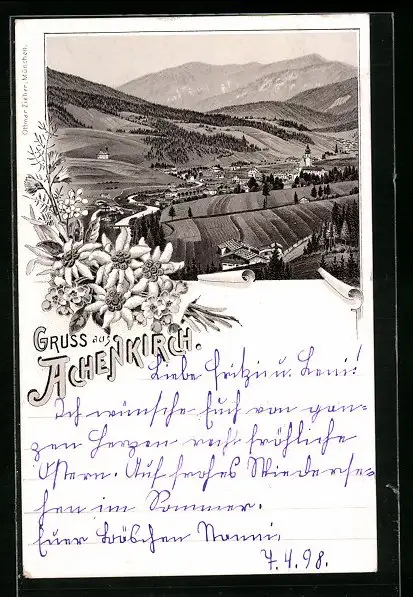 Ottmar Zieher, München.
GRUSS aus
ACHENKIRCH.
Liebe Fritzi u. Leni!
Ich wünsche Euch von gan-
zen Herzen recht fröhliche
Ostern. Auf frohes Wiederse-
hen im Sommer.
Euer Nanni.
7.4.98.